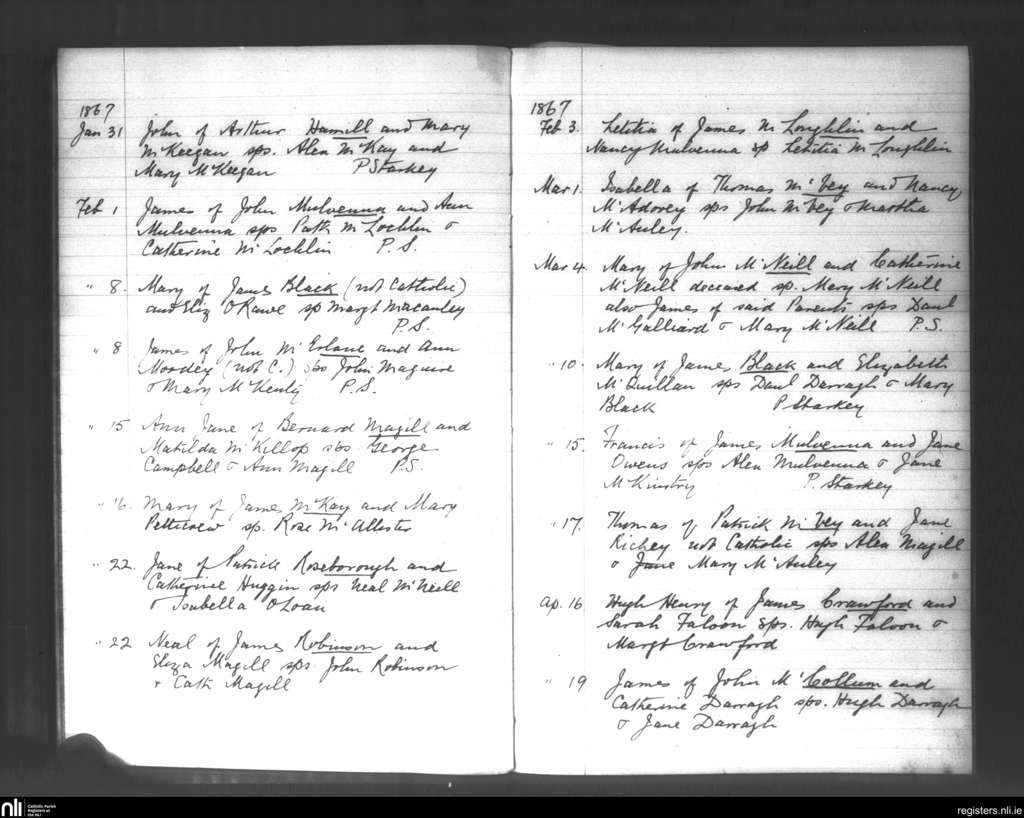 1867
Jan 31 John of Arthur Hamill and Mary
McKeegan sps. Alex McKay and
Mary McKeegan P Starkey
Feb 1 James of John Mulvenna and Ann
Mulvenna sps Patk McLochlin &
Catherine McLochlin P. S.
" 8. Mary of James Black (not Catholic)
and Eliz O Rawe sp Margt Macauley
P. S.
" 8 James of John Mc Erlane and Ann
(not C.) sps John Maguire
& Mary McKenty P. S.
" 15 Ann Jane of Bernard Magill and
Matilda McKillop sps. George
Campbell & Ann Magill P.S.
" 16. Mary of James McKay and Mary
Petticrew sp. Rose McAllister
" 22. Jane of Patrick Roseborough and
Catherine Huggin sps Neal McNeill
& Isabella O Loan
" 22 Neal of James Robinson and
Eliza Magill sps John Robinson
& Cath Magill
1867
Feb 3. Letitia of James McLoughlin and
Nancy Mulvenna sp Letitia McLoughlin
Mar 1. Isabella of Thomas McVey and Nancy
McAdorey sps John McVey & Martha
McAuley.
Mar 4. Mary of John McNeill and Catherine
McNeill deceased sp. Mary McNeill
also James of said Parents sps Danl
McGalliard & Mary McNeill P. S.
" 10. Mary of James Black and Elizabeth
McQuillan sps Danl Darragh & Mary
Black P Starkey
" 15. Francis of James Mulvenna and Jane
Owens sps Alex Mulvenna & Jane
McKinstry P. Starkey
" 17. Thomas of Patrick McVey and Jane
Richey not Catholic sps Alex Magill
& Jane Mary McAuley
Ap. 16 Hugh Henry of James Crawford and
Sarah Faloon sps. Hugh Faloon &
Margt Crawford
" 19 James of John McCollum and
Catherine Darragh sps. Hugh Darragh
& Jane Darragh
nli
Catholic Parish
Registers at
the NLI
registers.nli.ie